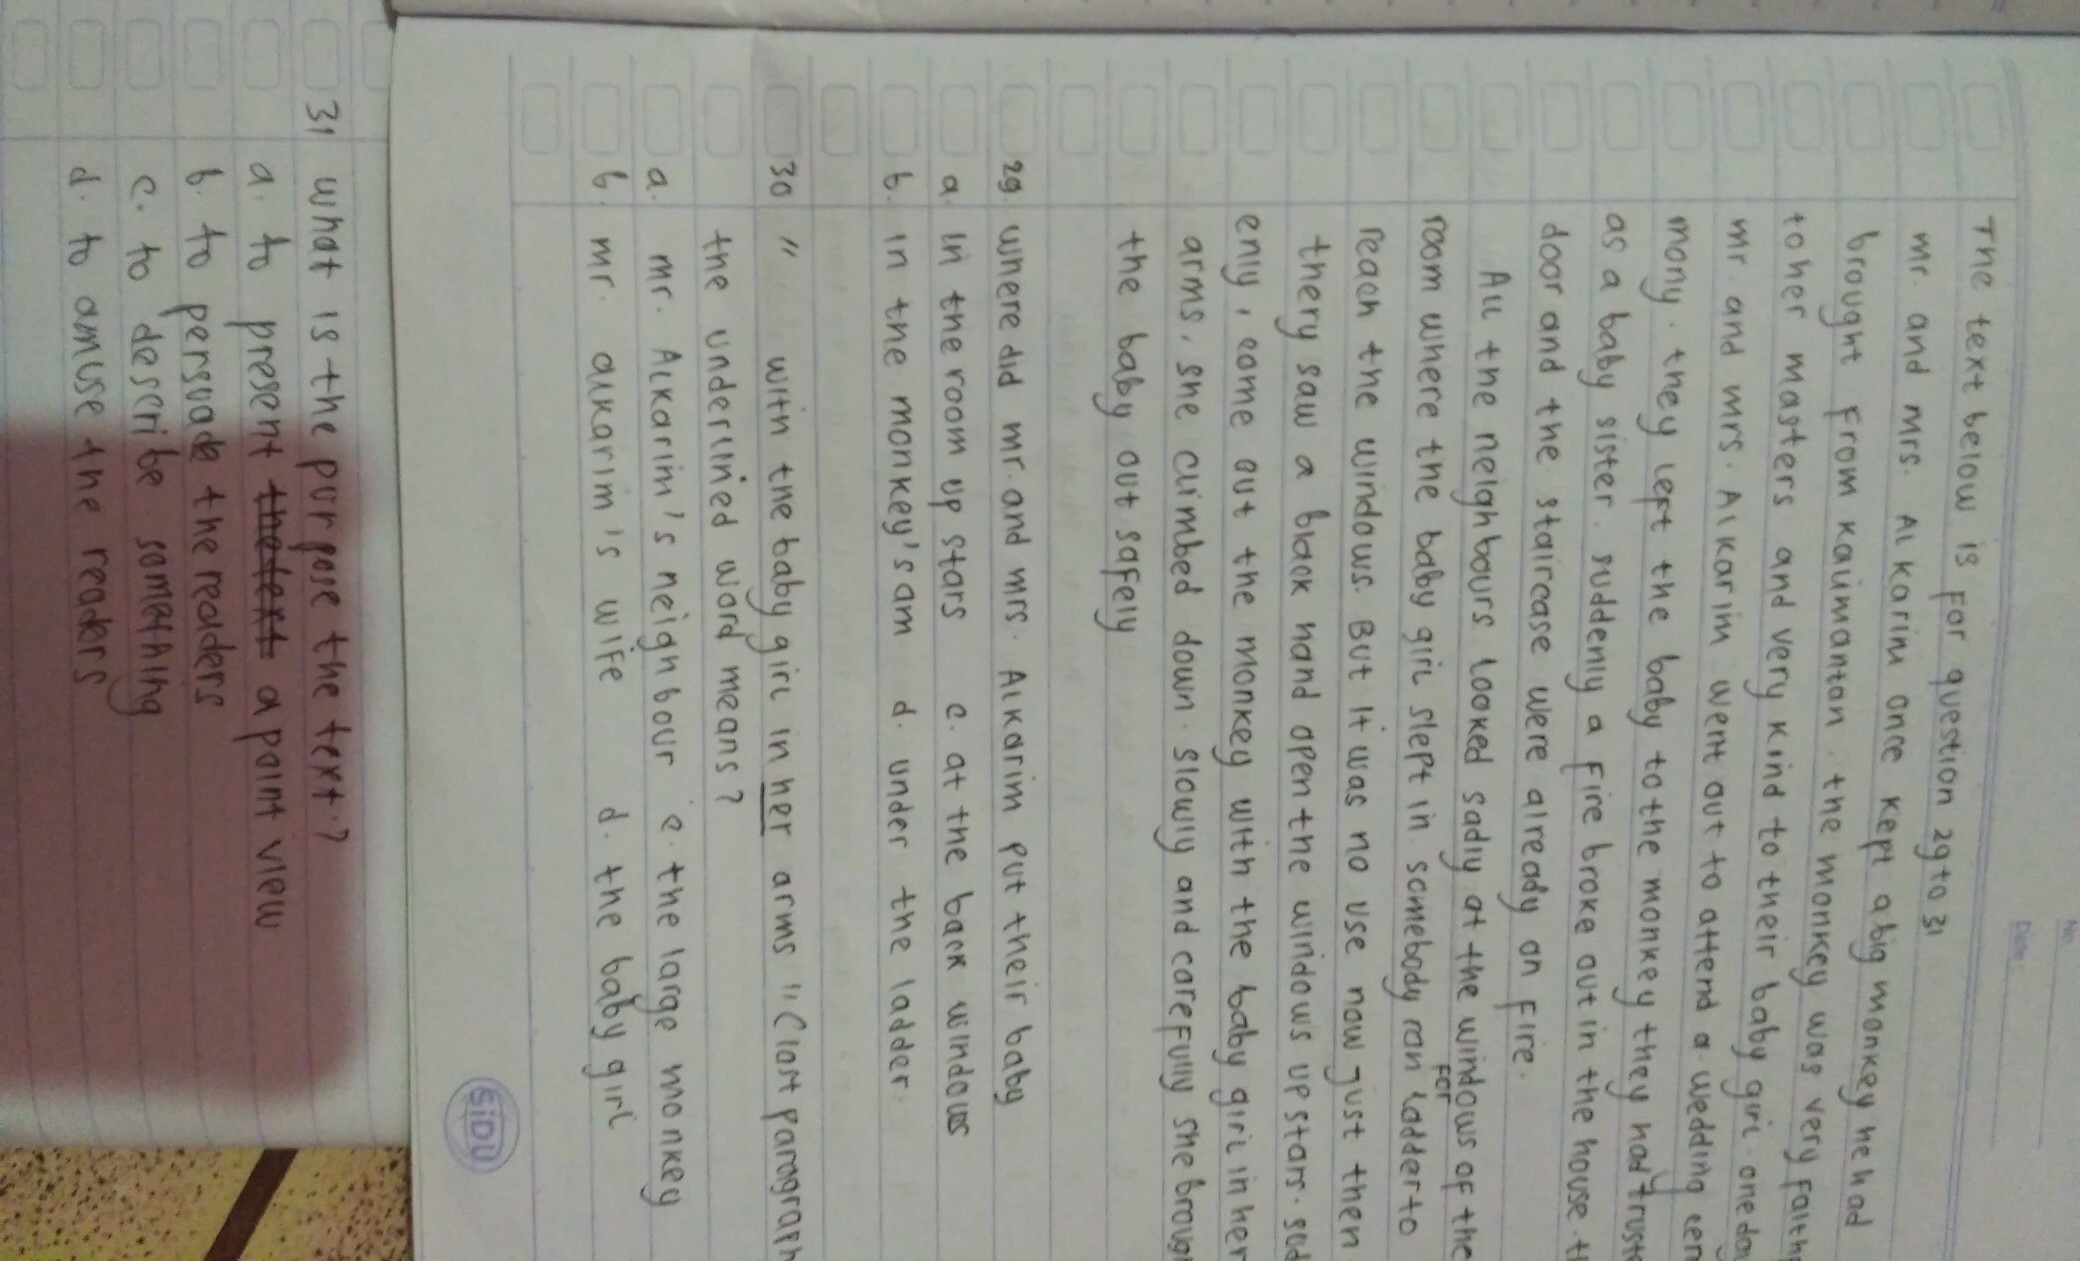 No.
Date:
The text below is for question 29 to 31
mr. and mrs. Al karim once kept a big monkey he had
brought from kalimantan. the monkey was very faithf
to her masters and very kind to their baby girl. one da
mr. and mrs. Alkarim went out to attend a wedding cere
mony. they left the baby to the monkey they had trust
as a baby sister. suddenly a fire broke out in the house. t
door and the staircase were already on fire.
All the neighbours looked sadly at the windows of the
room where the baby girl slept in. somebody ran for ladder to
reach the windows. But it was no use now just then
thery saw a black hand open the windows up stars. sud
enly, come out the monkey with the baby girl in her
arms, she climbed down. slowly and carefully she brough
the baby out safely
29. where did mr. and mrs. Alkarim put their baby
a. in the room up stars c. at the back windows
b. in the monkey's am d. under the ladder.
30 " with the baby girl in her arms " (last paragraph
the underlined word means?
a. mr. Alkarim's neighbour c. the large monkey
b. mr. alkarim's wife d. the baby girl
SIDU
31 what is the purpose the text?
a. to present the text a point view
b. to persuade the readers
c. to describe something
d. to amuse the readers